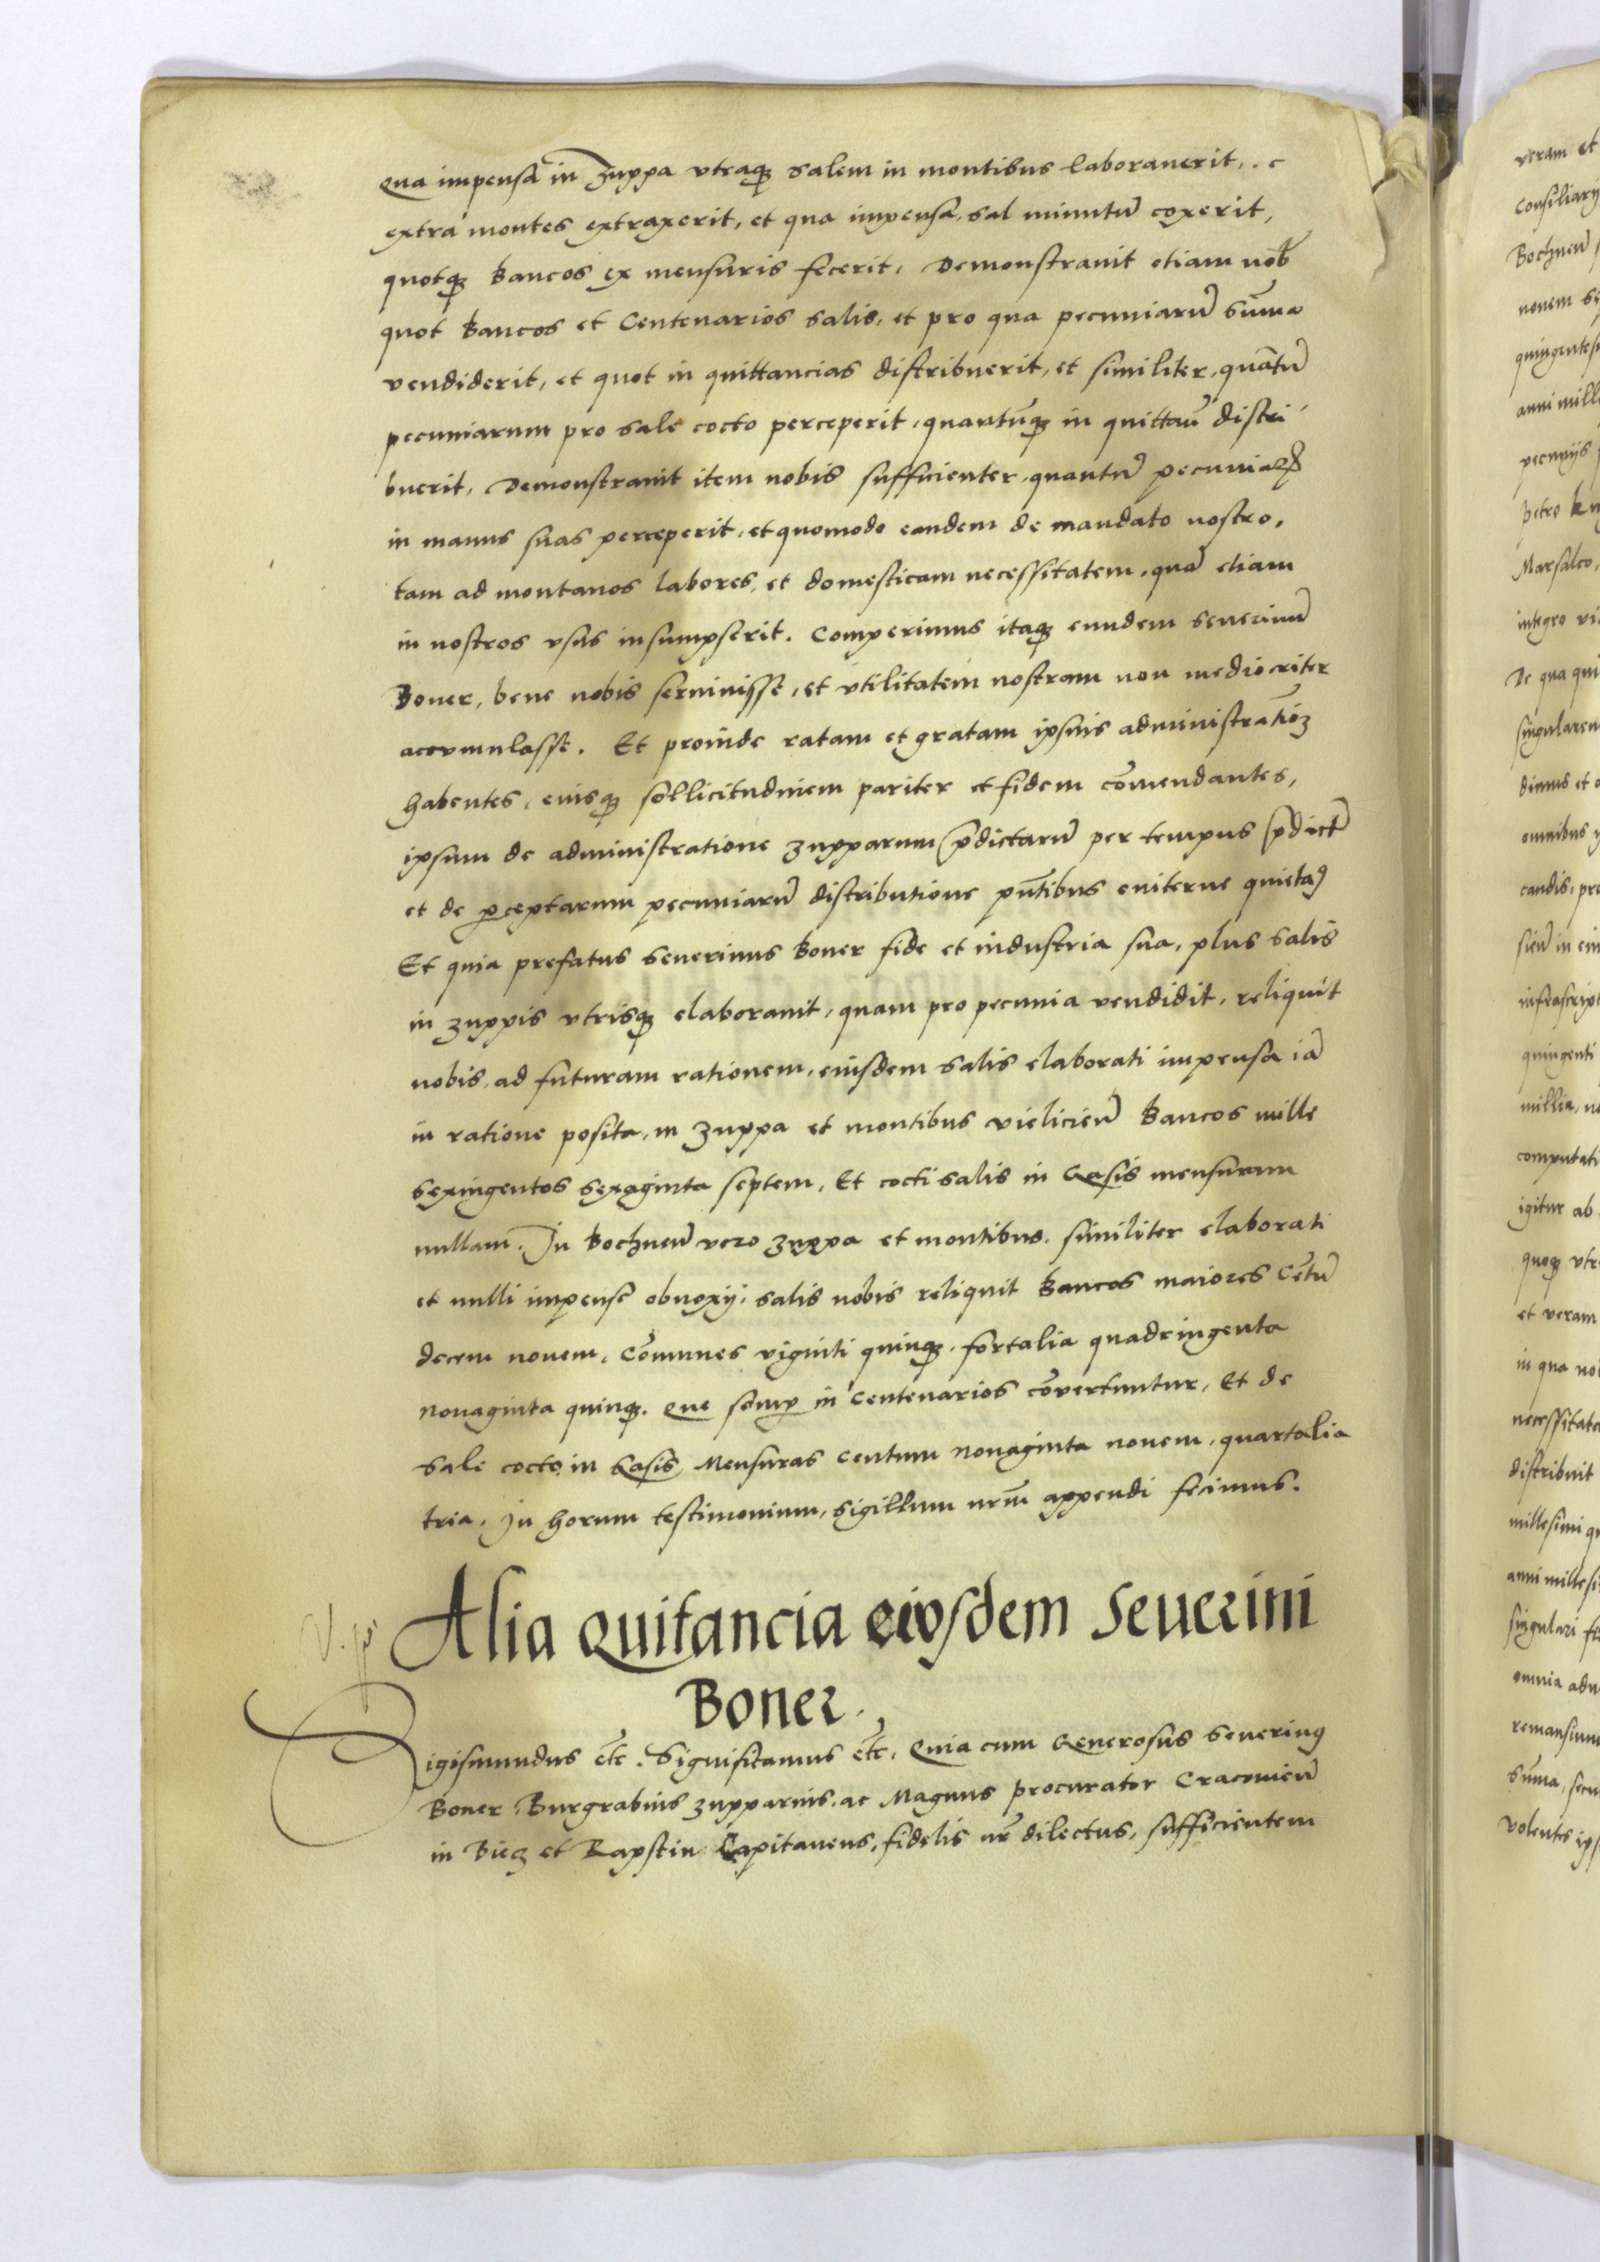 Qua impensa in Zuppa vtraqꝫ salem in montibus laborauerit, . c
extra montes extraxerit, et qua impensa sal minutū coxerit,
quotqꝫ Bancos ex mensuris fecerit, Demonstrauit etiam nob̄
quot Bancos et Centenarios salis, et pro qua pecuniarū sūma
vendiderit, et quot in quittancias distribuerit, et similiter, quātū
pecuniarum pro sale cocto perceperit, quantūqꝫ in quittan̄ distri
buerit, Demonstrauit item nobis sufficienter, quantū pecuniaꝝ
in manus suas perceperit, et quomodo eandem de mandato nostro,
tam ad montanos labores, et domesticam necessitatem, quā etiam
in nostros vsus insumpserit. Comperimus itaqꝫ eundem Seuerinū
Boner, bene nobis seruiuisse, et vtilitatem nostram non mediocriter
accumulasse. Et proinde ratam et gratam ipsius administratiōꝫ
habentes, eiusqꝫ sollicitudinem pariter et fidem cōmendantes,
ipsum de administratione Zupparum p̄dictarū per tempus p̄dictū
et de ꝑceptarum pecuniarū distributione pn̄tibus
Et quia prefatus Seuerinus Boner fide et industria sua, plus salis
in Zuppis vtrisqꝫ elaborauit, quam pro pecunia vendidit, reliquit
nobis, ad futuram rationem, eiusdem salis elaborati impensa iā
in ratione posita, in Zuppa et montibus vielicien̄ Bancos mille
sexingentos sexaginta septem, Et cocti salis in Casis mensuram
nullam. In Bochnen̄ vero Zuppa et montibus, similiter elaborati
et nulli impense obnoxij, salis nobis reliquit Bancos maiores Cētū
decem nouem, Cōmunes viginti quinqꝫ, fortalia quadringenta
Nonaginta quinqꝫ. Que semꝑ in Centenarios cōuertuntur, Et de
Sale cocto in Casis Mensuras Centum Nonaginta nouem, quartalia
tria. In horum testimonium, Sigillum nr̄m appendi fecimus.
Alia Quitancia eiusdem Seuerini
Boner.
Sigismundus etc̄. Significamus etc̄. Quia cum Generosus Seuerinꝰ
Boner Burgrabius Zupparius, ac Magnus procurator Cracouien̄
in Biecz et Rapstin Capitaneus, fidelis nr̄ dilectus, sufficientem
veram et
Consiliarij
Bochnen̄
nonem
anni mill
Petro
Marsalco,
integro
De qua qui
singularem
dimus et
omnibus
candis, pro
sien̄ in
infrascript
quingenti
millia,
computati
igitur ab
quoqꝫ vtr
et veram
in qua
necessitate
distribuit
millesimi
anni millesi
singulari
omnia
Sūma,
volentes